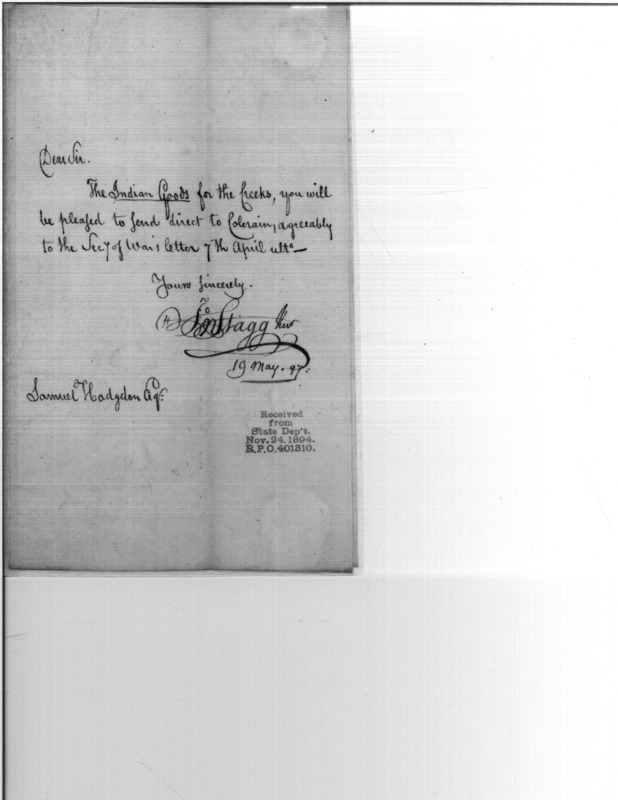 Dear Sir.
The Indian Goods for the Creeks, you will
be pleased to send direct to Colerain, agreeably
to the Secy of War's letter 7th April ulto—
Yours sincerely.
Jno Stagg Junr
19 May. 97.
Samuel Hodgdon Esqr.
Received
from
State Dep't.
Nov. 24. 1894.
R.P.O. 401310.